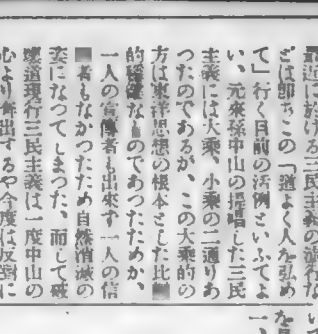 最近に於ける三民主義の流行な
どは卽ちこの「道よく人を弘め
て」行く目前の活例といふてよ
い、元來孫中山の提唱した三民
主義には大乘、小乘の二通りあ
つたのであるが、この大乘的の
方は東洋思想の根本とした比
的穩健な のであつたためか、
一人の宣傳者も出來ず一人の信
者もなかつたため自然消滅の
姿になつてしまつた、而して破
壞道現行三民主義は一度中山の
心より 出するや今度は反對に